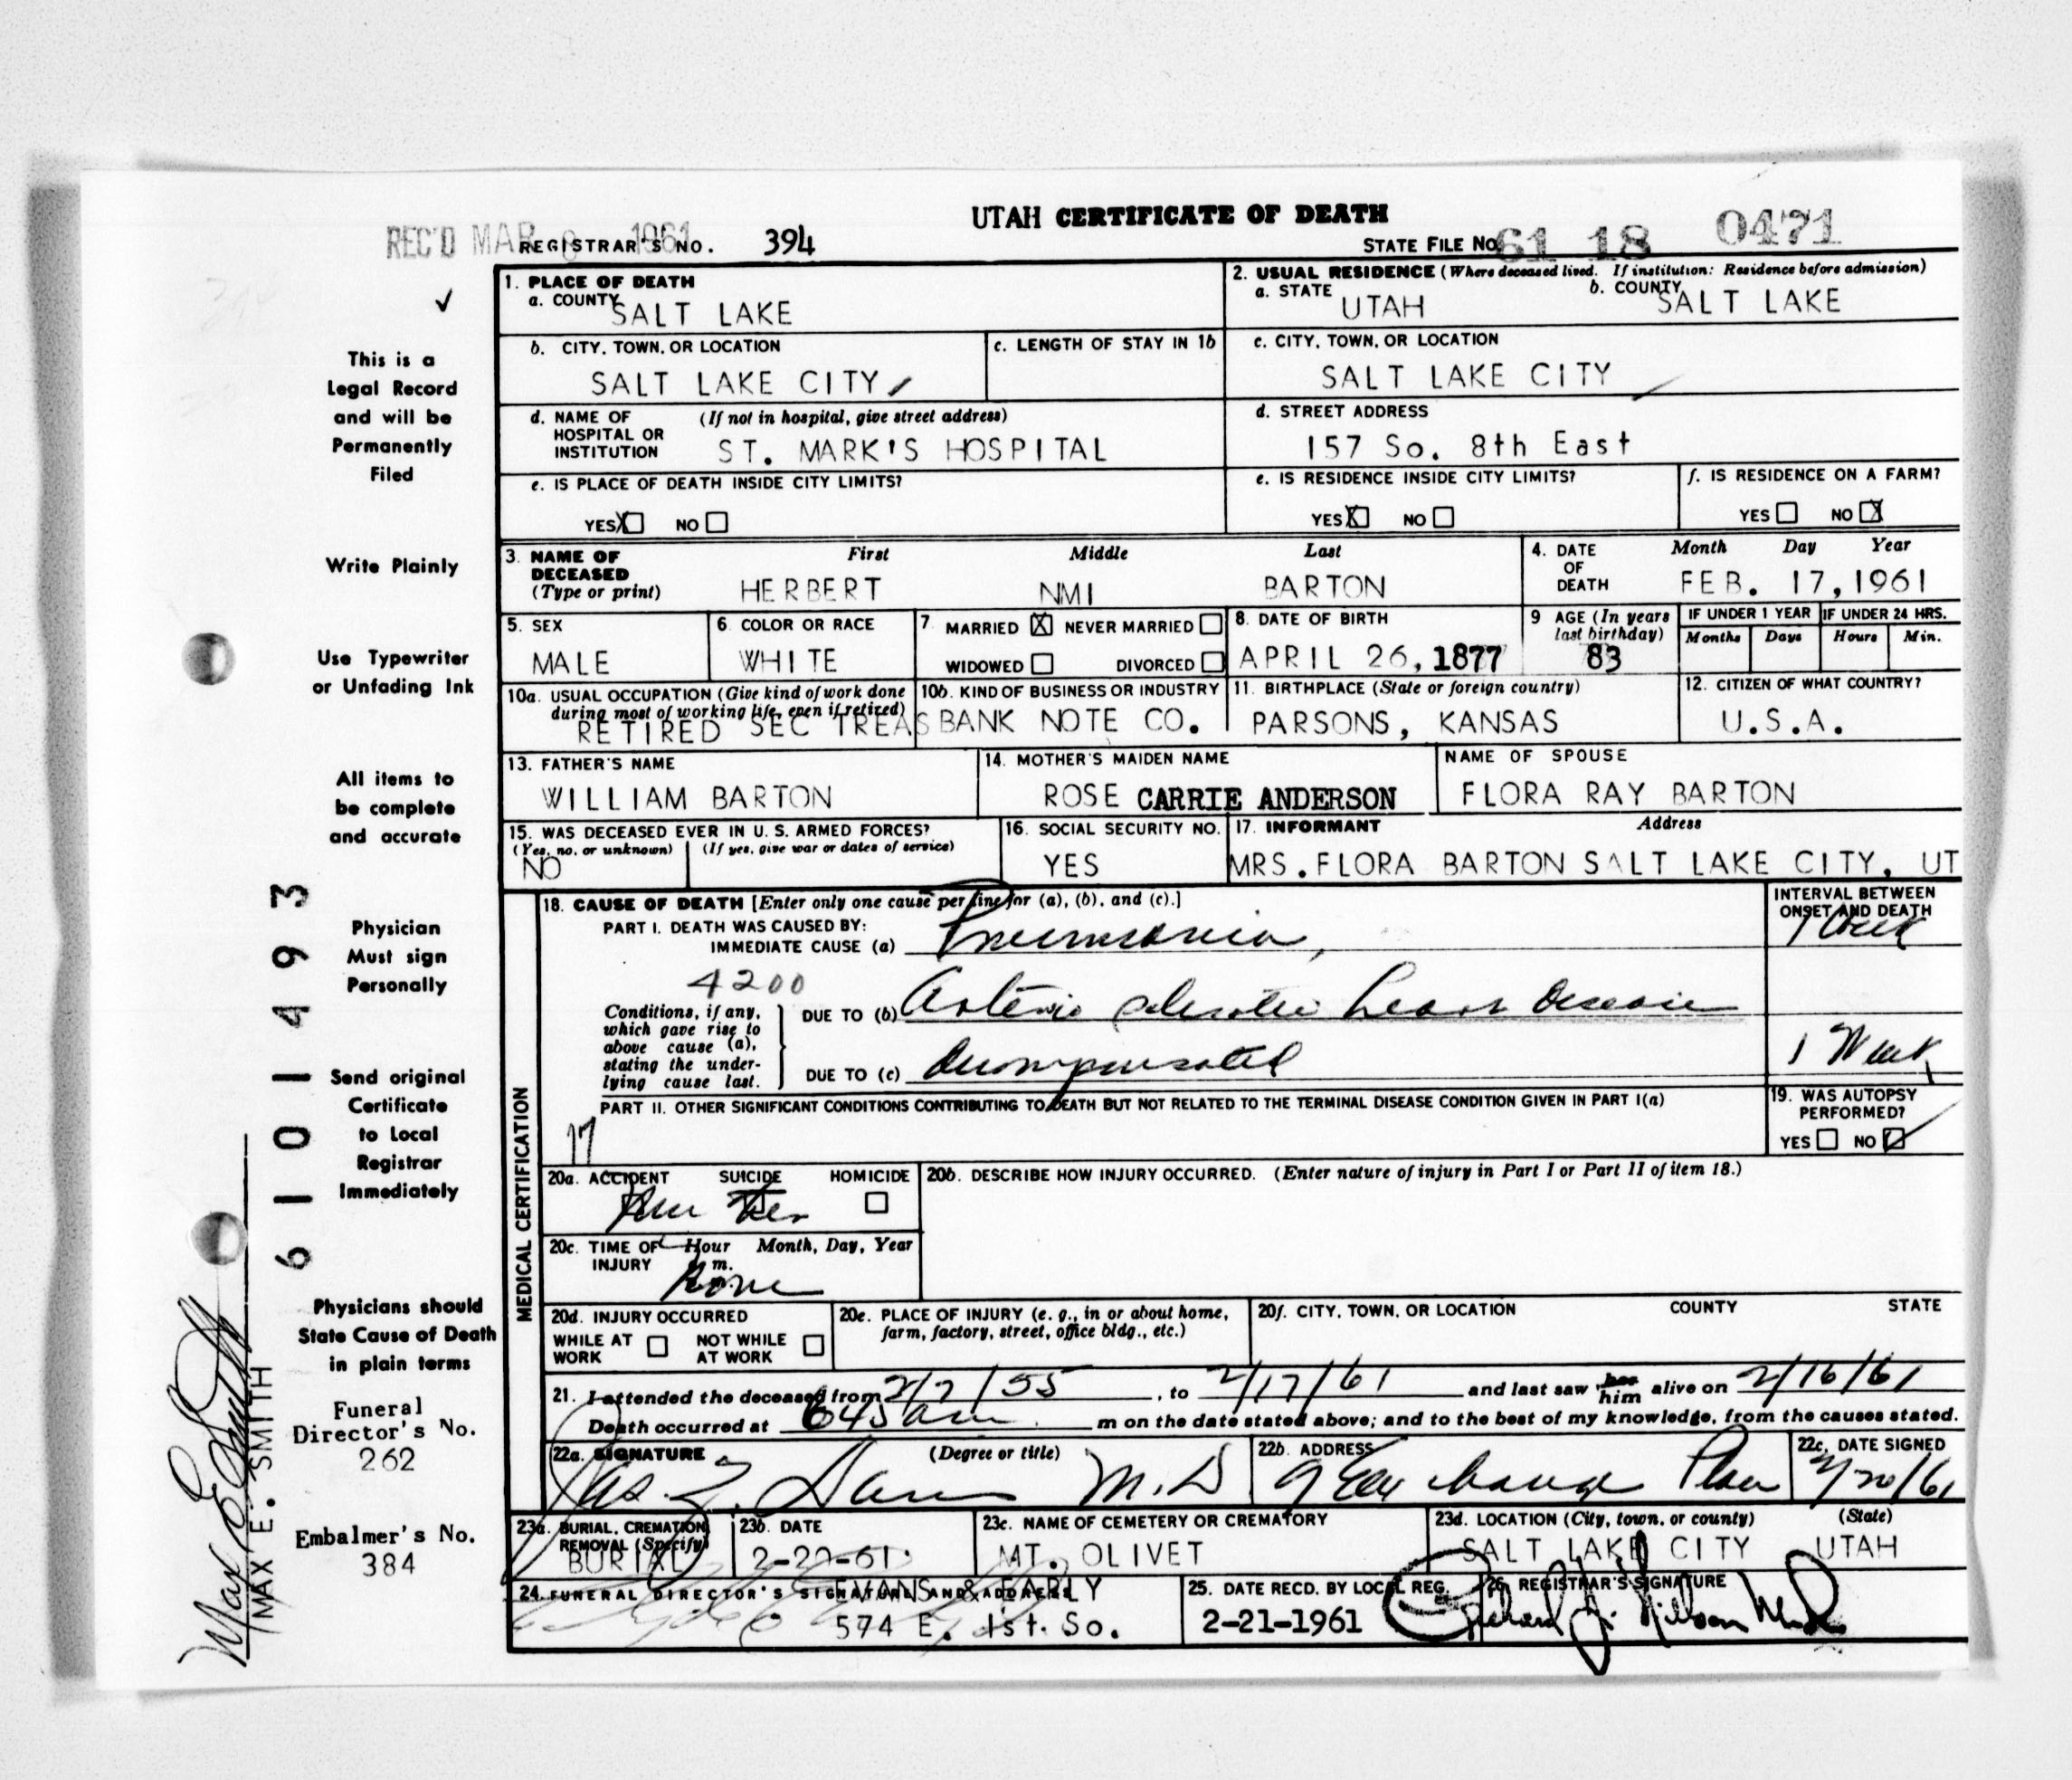 UTAH CERTIFICATE OF DEATH
REC'D MAR 1961 REGISTRAR'S NO. 394 STATE FILE NO. 61 18 0471
1. PLACE OF DEATH
a. COUNTY SALT LAKE
2. USUAL RESIDENCE (Where deceased lived. If institution: Residence before admission)
a. STATE UTAH b. COUNTY SALT LAKE
b. CITY, TOWN, OR LOCATION SALT LAKE CITY
c. LENGTH OF STAY IN 1b
c. CITY, TOWN, OR LOCATION SALT LAKE CITY
d. NAME OF HOSPITAL OR INSTITUTION (If not in hospital, give street address)
ST. MARK'S HOSPITAL
d. STREET ADDRESS
157 So. 8th East
e. IS PLACE OF DEATH INSIDE CITY LIMITS?
YES X NO
e. IS RESIDENCE INSIDE CITY LIMITS?
YES X NO
f. IS RESIDENCE ON A FARM?
YES NO X
3. NAME OF DECEASED (Type or print)
First Middle Last
HERBERT NMI BARTON
4. DATE OF DEATH Month Day Year
FEB. 17, 1961
5. SEX MALE
6. COLOR OR RACE WHITE
7. MARRIED X NEVER MARRIED
WIDOWED DIVORCED
8. DATE OF BIRTH APRIL 26, 1877
9 AGE (In years last birthday) 83
IF UNDER 1 YEAR Months Days
IF UNDER 24 HRS. Hours Min.
10a. USUAL OCCUPATION (Give kind of work done during most of working life, even if retired)
RETIRED SEC TREAS
10b. KIND OF BUSINESS OR INDUSTRY
BANK NOTE CO.
11. BIRTHPLACE (State or foreign country)
PARSONS, KANSAS
12. CITIZEN OF WHAT COUNTRY?
U.S.A.
13. FATHER'S NAME
WILLIAM BARTON
14. MOTHER'S MAIDEN NAME
ROSE CARRIE ANDERSON
NAME OF SPOUSE
FLORA RAY BARTON
15. WAS DECEASED EVER IN U. S. ARMED FORCES?
(Yes, no, or unknown) (If yes, give war or dates of service)
NO
16. SOCIAL SECURITY NO.
YES
17. INFORMANT Address
MRS. FLORA BARTON SALT LAKE CITY, UT
MEDICAL CERTIFICATION
18. CAUSE OF DEATH [Enter only one cause per line for (a), (b), and (c).]
INTERVAL BETWEEN ONSET AND DEATH
PART I. DEATH WAS CAUSED BY:
IMMEDIATE CAUSE (a) Pneumonia, 1 Week
4200
Conditions, if any, which gave rise to above cause (a), stating the underlying cause last.
DUE TO (b) Arterio sclerotic heart disease
DUE TO (c) decompensated 1 Week
PART II. OTHER SIGNIFICANT CONDITIONS CONTRIBUTING TO DEATH BUT NOT RELATED TO THE TERMINAL DISEASE CONDITION GIVEN IN PART I(a)
17
19. WAS AUTOPSY PERFORMED?
YES NO
20a. ACCIDENT SUICIDE HOMICIDE
20b. DESCRIBE HOW INJURY OCCURRED. (Enter nature of injury in Part I or Part II of item 18.)
20c. TIME OF INJURY Hour Month, Day, Year
m.
None
20d. INJURY OCCURRED
WHILE AT WORK NOT WHILE AT WORK
20e. PLACE OF INJURY (e. g., in or about home, farm, factory, street, office bldg., etc.)
20f. CITY, TOWN, OR LOCATION COUNTY STATE
21. I attended the deceased from 2/7/55, to 2/17/61 and last saw her him alive on 2/16/61
Death occurred at 645 am m on the date stated above; and to the best of my knowledge, from the causes stated.
22a. SIGNATURE (Degree or title)
M.D
22b. ADDRESS
9 Exchange Place
22c. DATE SIGNED
2/20/61
23a. BURIAL, CREMATION, REMOVAL (Specify)
BURIAL
23b. DATE
2-20-61
23c. NAME OF CEMETERY OR CREMATORY
MT. OLIVET
23d. LOCATION (City, town, or county) (State)
SALT LAKE CITY UTAH
24. FUNERAL DIRECTOR'S SIGNATURE AND ADDRESS
EVANS & EARLY
574 E. 1st. So.
25. DATE RECD. BY LOCAL REG.
2-21-1961
26. REGISTRAR'S SIGNATURE
This is a
Legal Record
and will be
Permanently
Filed
Write Plainly
Use Typewriter
or Unfading Ink
All items to
be complete
and accurate
Physician
Must sign
Personally
Send original
Certificate
to Local
Registrar
Immediately
Physicians should
State Cause of Death
in plain terms
Funeral
Director's No.
262
Embalmer's No.
384
6101493
Max E Smith
MAX E. SMITH